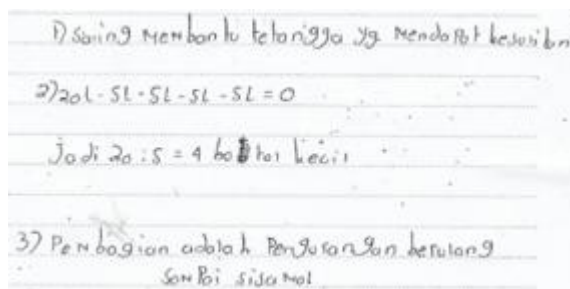 1) Saling Membantu tetangga yg Mendapat kesulitan
2) 20L - 5L - 5L - 5L - 5L = 0
Jadi 20 : 5 = 4 botol kecil
3) Pembagian adalah Pengurangan berulang
Sampai sisa nol